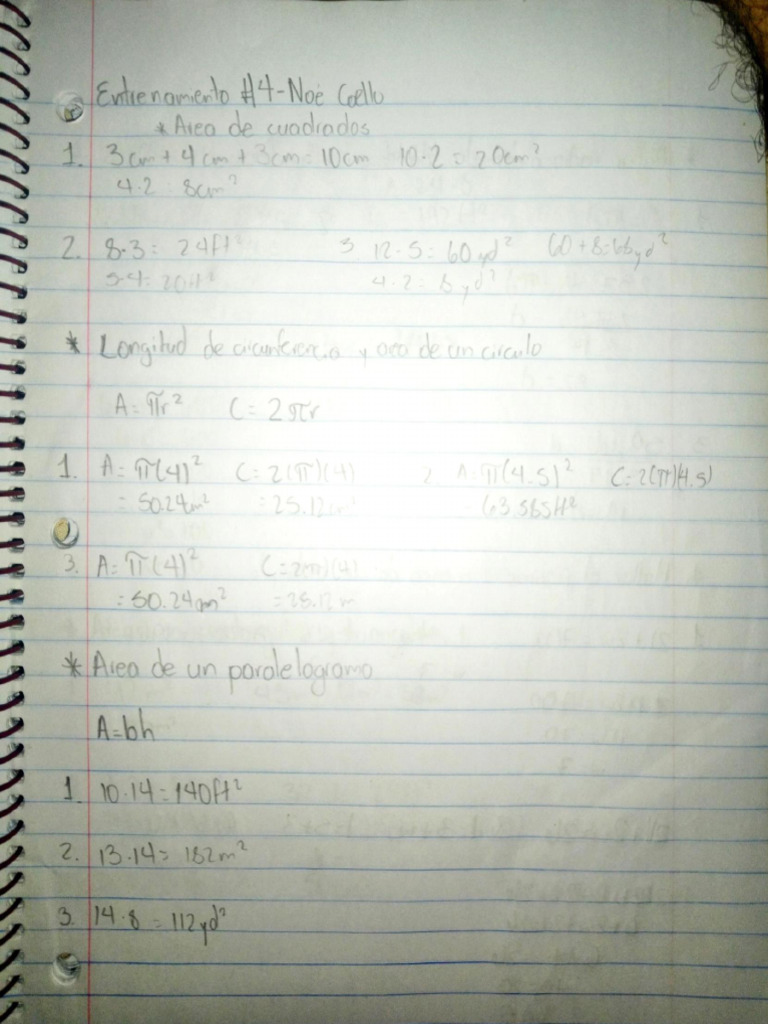 Entrenamiento #4-Noé Coello
* Area de cuadrados
1. 3cm + 4cm + 3cm = 10cm 10·2 = 20cm²
4·2 = 8cm²
2. 8·3 = 24ft² 3 12·5 = 60yd² 60+8=68yd²
5·4 = 20ft² 4·2 = 8yd²
* Longitud de circunferencia y area de un circulo
A = πr² C = 2πr
1. A = π(4)² C = 2(π)(4) 2. A = π(4.5)² C = 2(π)(4.5)
= 50.24m² = 25.12 = 63.585ft²
3. A = π(4)² C = 2(π)(4)
= 50.24cm² = 25.12
* Area de un paralelogramo
A=bh
1. 10·14=140ft²
2. 13·14= 182m²
3. 14·8 = 112yd²